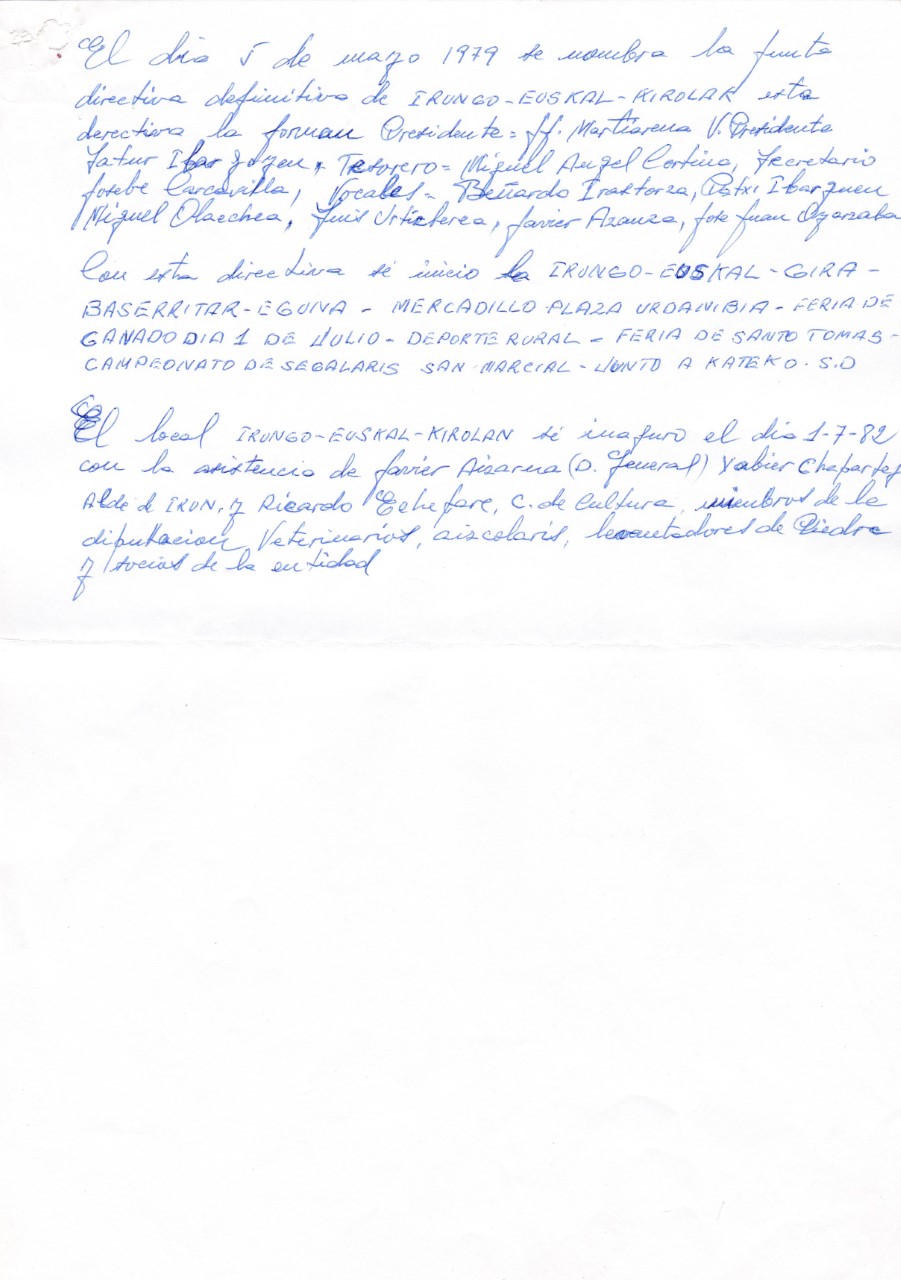 El dia 5 de marzo 1979 se nombra la junta
directiva definitiva de IRUNGO-EUSKAL-KIROLAK esta
derectiva la forman Presidente= JJ. Martiarena V. Presidente
Satur Ibarzozen, Tesorero= Miguel Angel Cortina, Secretario
Josebe Carcavilla, Vocales= Beñardo Irastorza, Patxi Ibarguen
Miguel Olaechea, Luis Urtizberea, Javier Azanza, Jose Juan Oyarzaba
Con esta directiva sé inicio la IRUNGO-EUSKAL-GIRA-
BASERRITAR-EGUNA - MERCADILLO PLAZA URDANIBIA - FERIA DE
GANADO DIA 1 DE JULIO - DEPORTE RURAL - FERIA DE SANTO TOMAS-
CAMPEONATO DE SEGALARIS SAN MARCIAL - JUNTO A KATEKO. S.D
El local IRUNGO-EUSKAL-KIROLAN sé inaguro el dia 1-7-82
con la asistencia de Javier Aizarna (D. General) Xabier
Alde d IRUN, y Ricardo Echepare, C. de Cultura, miembros de la
diputacion Veterinarios, aizcolaris, levantadores de Piedra
y socios de la entidad